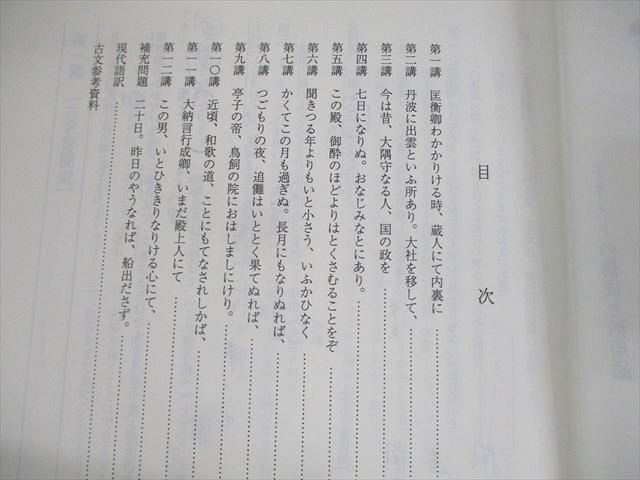 目次
第一講 匡衡卿わかかりける時、蔵人にて内裏に
第二講 丹波に出雲といふ所あり。大社を移して、
第三講 今は昔、大隅守なる人、国の政を
第四講 七日になりぬ。おなじみなとにあり。
第五講 この殿、御酔のほどよりはとくさむることをぞ
第六講 聞きつる年よりもいと小さう、いふかひなく
第七講 かくてこの月も過ぎぬ。長月にもなりぬれば、
第八講 つごもりの夜、追儺はいととく果てぬれば、
第九講 亭子の帝、鳥飼の院におはしましにけり。
第一〇講 近頃、和歌の道、ことにもてなされしかば、
第一一講 大納言行成卿、いまだ殿上人にて
第一二講 この男、いとひききりなりける心にて、
補充問題 二十日。昨日のやうなれば、船出ださず。
現代語訳
古文参考資料